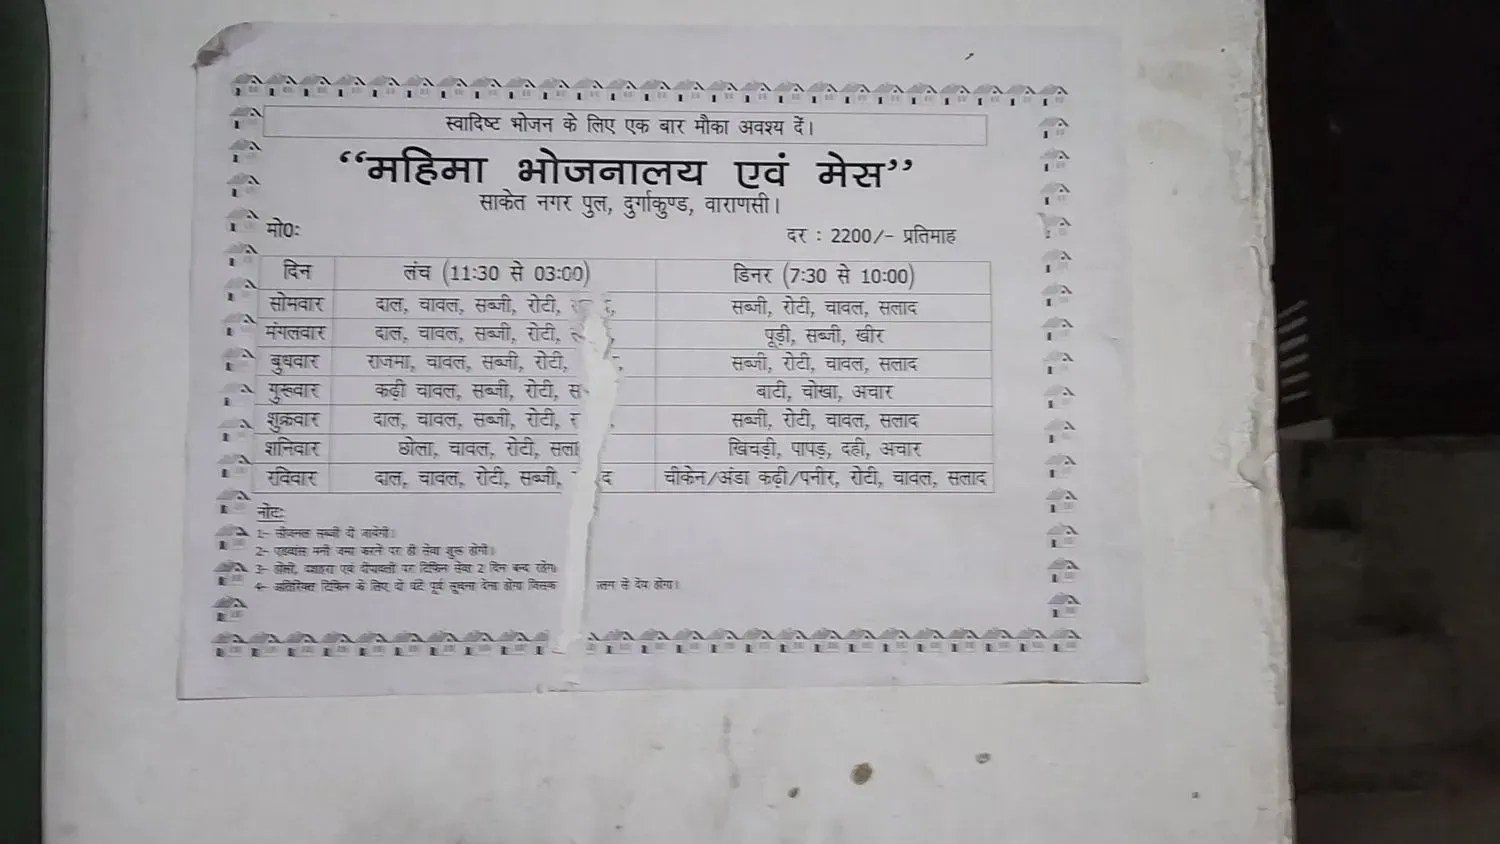 स्वादिष्ट भोजन के लिए एक बार मौका अवश्य दें।
“महिमा भोजनालय एवं मेस”
साकेत नगर पुल, दुर्गाकुण्ड, वाराणसी।
मो0: दर : 2200/- प्रतिमाह
दिन लंच (11:30 से 03:00) डिनर (7:30 से 10:00)
सोमवार दाल, चावल, सब्जी, रोटी, सब्जी, रोटी, चावल, सलाद
मंगलवार दाल, चावल, सब्जी, रोटी, पूड़ी, सब्जी, खीर
बुधवार राजमा, चावल, सब्जी, रोटी, सब्जी, रोटी, चावल, सलाद
गुरूवार कढ़ी चावल, सब्जी, रोटी, बाटी, चोखा, अचार
शुक्रवार दाल, चावल, सब्जी, रोटी, सब्जी, रोटी, चावल, सलाद
शनिवार छोला, चावल, रोटी, खिचड़ी, पापड़, दही, अचार
रविवार दाल, चावल, रोटी, सब्जी, चीकेन/अंडा कढ़ी/पनीर, रोटी, चावल, सलाद
नोट:
1- सीजनल सब्जी दी जायेगी।
2- एडवांस मनी जमा करने पर ही सेवा शुरू होगी।
3- होली, दशहरा एवं दीपावली पर टिफिन सेवा 2 दिन बन्द रहेगा
4- अतिरिक्त टिफिन के लिए दो घंटे पूर्व सूचना देना होगा जिसका से देय होगा।